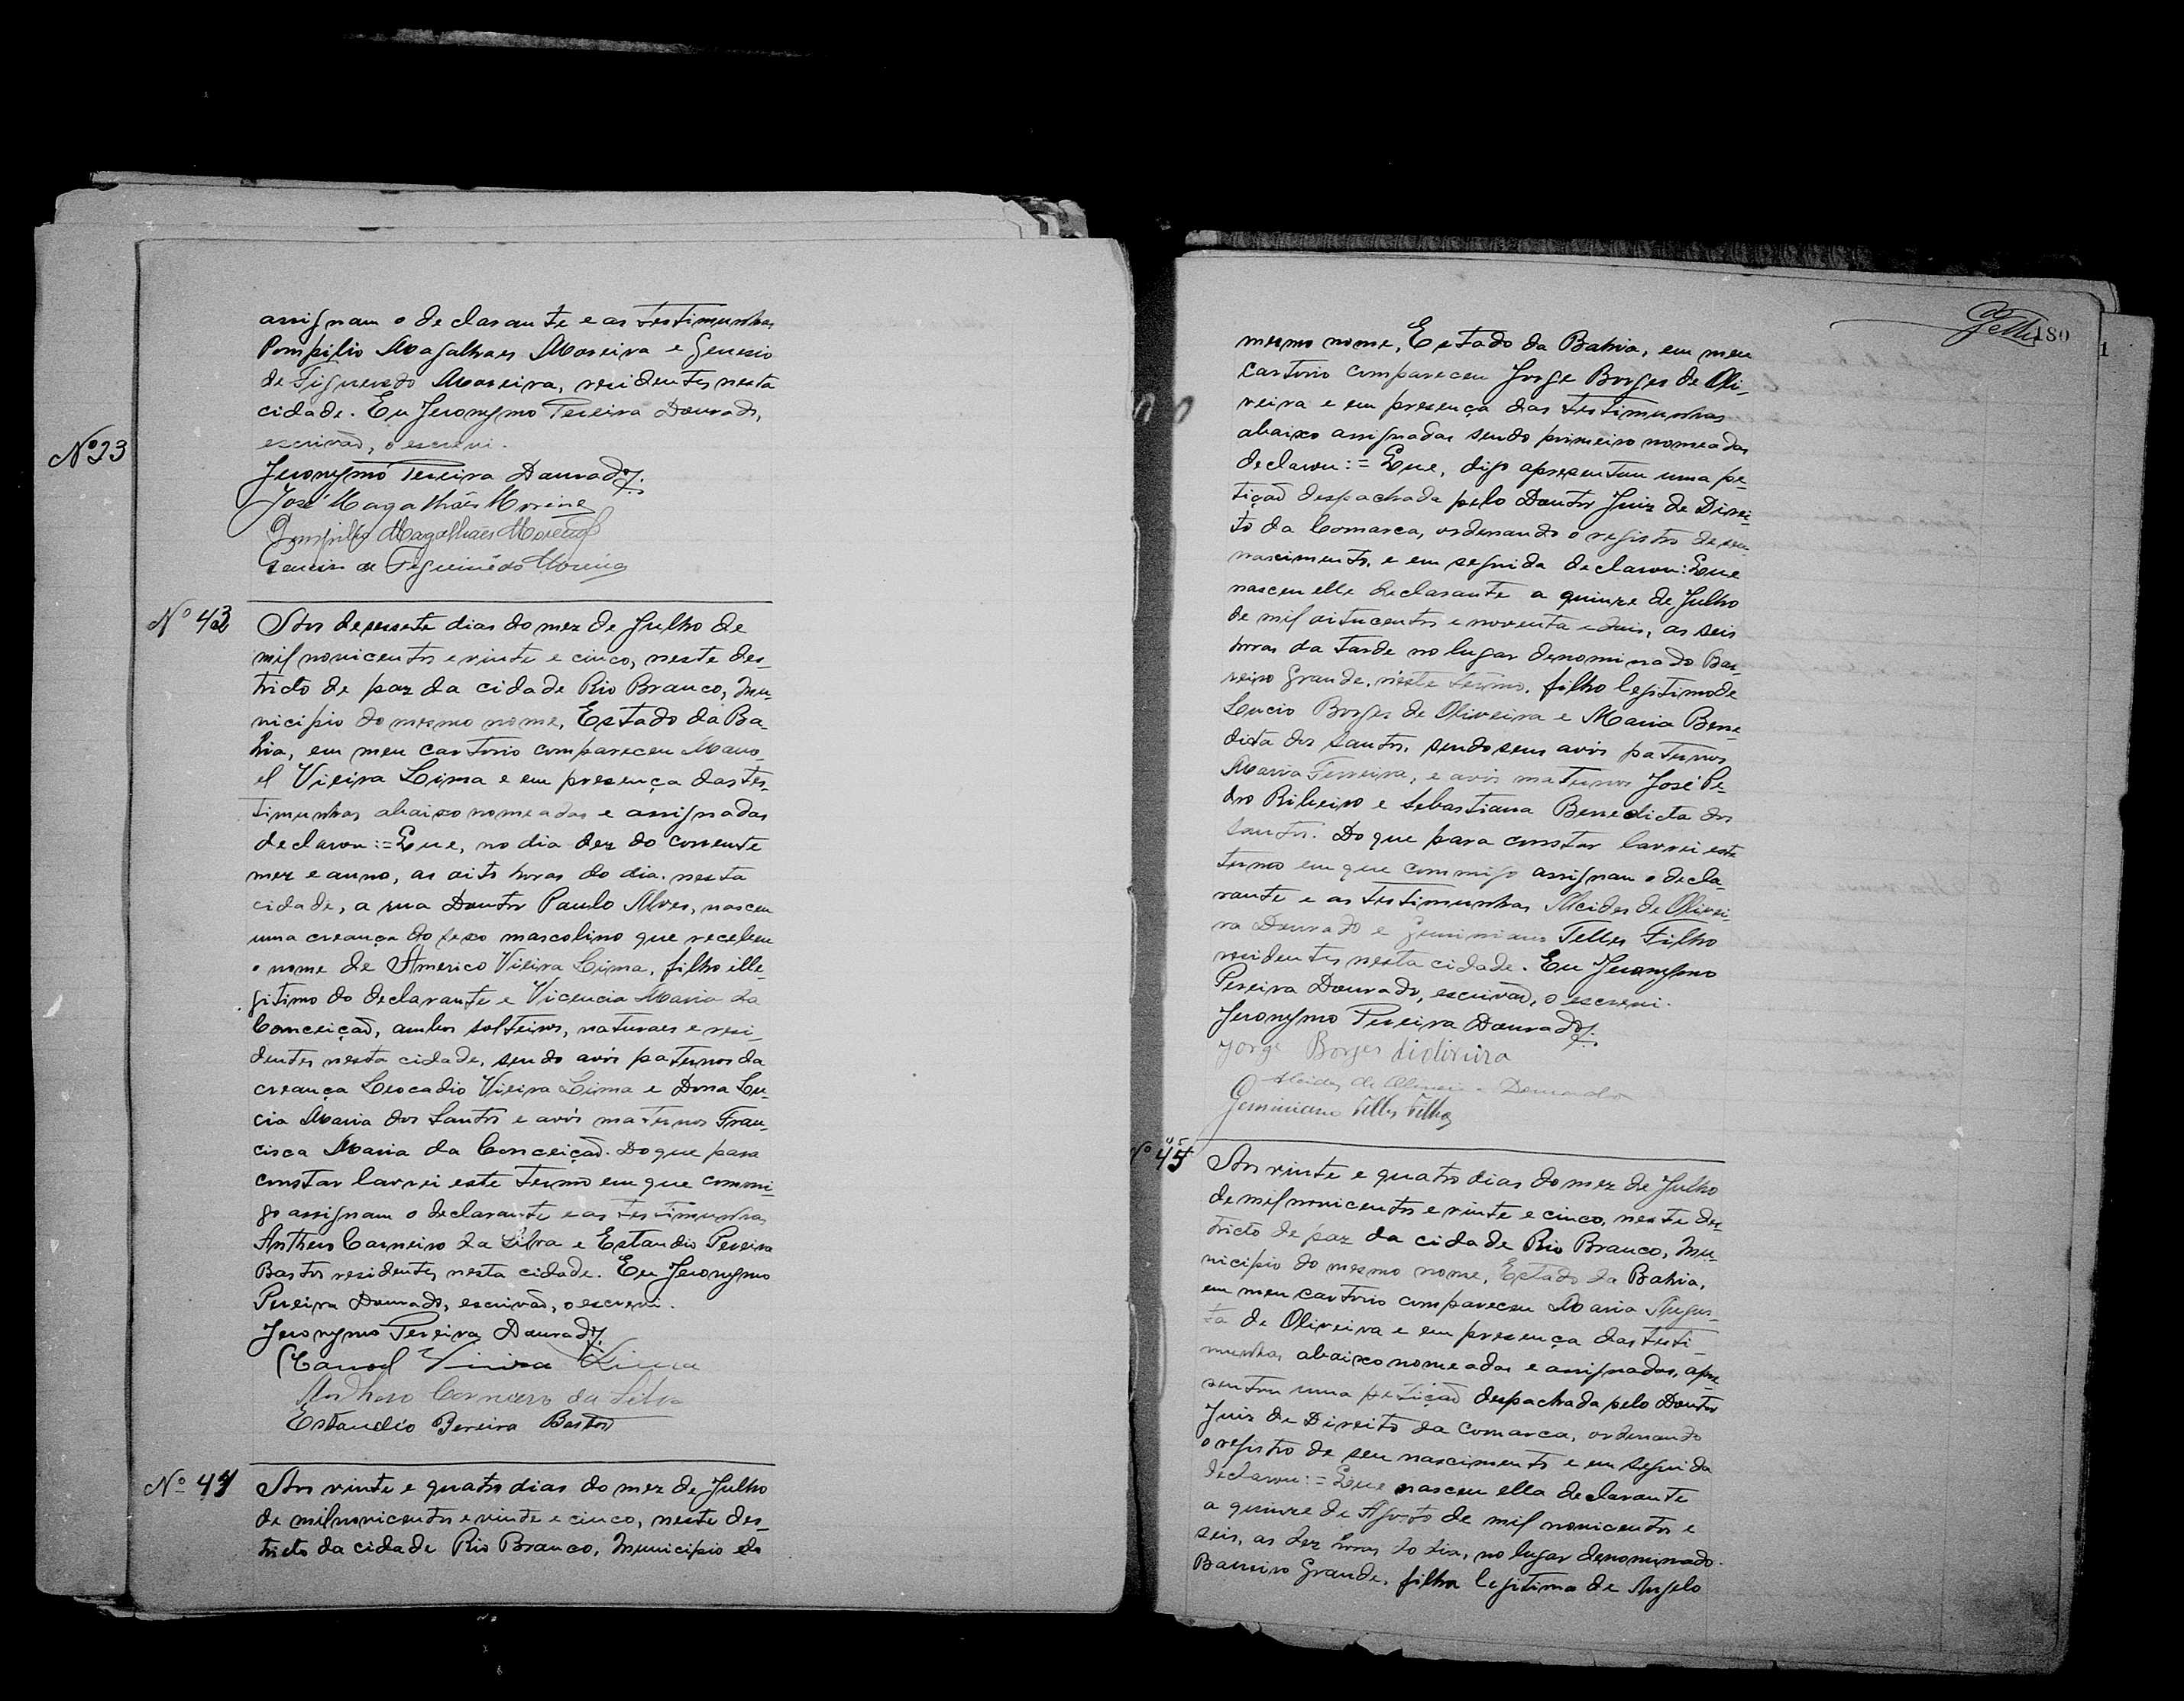 assignam o declarante e as testimunhas
Pompilio Magalhaes Moreira e Genesio
de Figueredo Moreira, residentes nesta
cidade. Eu Jeronymo Pereira Dourado,
escrivão, o escrevi.
Nº 23
Jeronymo Pereira Dourado
José Magalhães Moreira
Pompilio Magalhães Moreira
Genesio de Figueirêdo Moreira
Nº 43
Aos desessete dias do mez de Julho de
mil novicentos e vinte e cinco, neste des-
tricto de paz da cidade Rio Branco, Mu-
nicipio do mesmo nome, Estado da Ba-
hia, em meu cartorio compareceu Mano-
el Vieira Lima e em presença das tes-
timunhas abaixo nomeadas e assignadas
declarou:=Que, no dia dez do corrente
mez e anno, as oito horas do dia, nesta
cidade, a rua Doutor Paulo Alves, nasceu
uma creança do sexo mascolino que recebeu
o nome de Americo Vieira Lima, filho ille-
gitimo do declarante e Vicencia Maria da
Conceição, ambos solteiros, naturaes e resi-
dentes nesta cidade, sendo avós paternos da
creança Leocadio Vieira Lima e Dona Lu-
cia Maria dos Santos e avós maternos Fran-
cisca Maria da Conceição. Do que para
constar lavrei este termo em que commi-
go assignam o declarante e as testimunhas
Anthero Carneiro da Silva e Estandio Pereira
Bastos residentes nesta cidade. Eu Jeronymo
Pereira Dourado, escrivão, o escrevi.
Jeronymo Pereira Dourado
Manoel Vieira Lima
Anthero Carneiro da Silva
Estaudio Pereira Bastos
Nº 44
Aos vinte e quatro dias do mez de Julho
de mil novicentos e vinte e cinco, neste des-
tricto da cidade Rio Branco, Municipio do
Telles 180
1
mesmo nome, Estado da Bahia, em meu
cartorio compareceu Jorge Borges de Oli-
veira e em presença das testimunhas
abaixo assignadas sendo primeiro nomeadas
declarou:= Que, digo apresentou uma pe-
tição despachada pelo Doutor Juiz de Direi-
to da Comarca, ordenando o registro de seu
nascimento, e em seguida declarou: Que
nasceu elle declarante a quinze de Julho
de mil oitucentos e noventa e dois, as seis
horas da tarde no lugar denominado Bar-
reiro Grande, nêste termo, filho legitimo de
Lucio Borges de Oliveira e Maria Bene-
dicta dos Santos, sendo seus avós paternos
Maria Ferreira, e avós maternos José Pe-
dro Ribeiro e Sebastiana Benedicta dos
Santos. Do que para constar lavrei este
termo em que commigo assignam o decla-
rante e as testimunhas Alcides de Olivei-
ra Dourado e Geminiano Telles Filho
residentes nesta cidade. Eu Jeronymo
Pereira Dourado, escrivão, o escrevi.
Jeronymo Pereira Dourado
Jorge Borges di oliveira
Alcides de Oliveira Dourado
Geminiano Telles Filho
Nº 45
Aos vinte e quatro dias do mez de Julho
de mil novicentos e vinte e cinco, neste des-
tricto de paz da cidade Rio Branco, Mu-
nicipio do mesmo nome, Estado da Bahia,
em meu cartorio compareceu Maria Augus-
ta de Oliveira e em presença das testi-
munhas abaixo nomeadas e assignadas, apre-
sentou uma petição despachada pelo Doutor
Juiz de Direito da Comarca, ordenando
o registro de seu nascimento e em seguida
declarou:= Que nasceu ella declarante
a quinze de Agosto de mil novicentos e
seis, as dez horas do dia, no lugar denominado
Barreiro Grande, filha legitima de Angelo